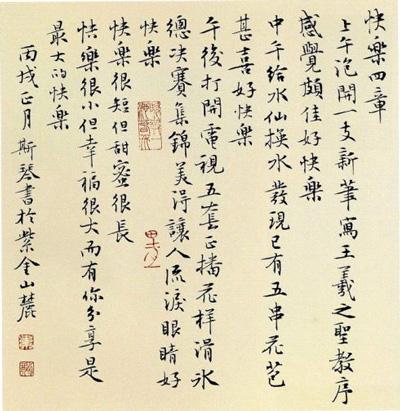 快樂四章
上午泡開一支新筆寫王羲之聖教序
感覺頗佳好快樂
中午給水仙換水發現已有五串花苞
甚喜好快樂
午後打開電視五套正播花样滑冰
總決賽集錦美得讓人流淚眼睛好
快樂
快樂很短但甜蜜很長
快樂很小但幸福很大而有你分享是
最大的快樂
丙戌正月斯琴書於紫金山麓